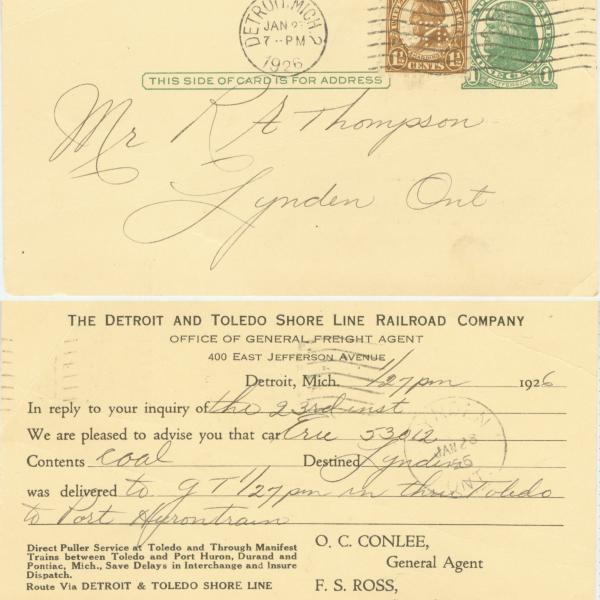 DETROIT, MICH. 2
JAN 2
7 - PM
1926
1½ CENTS 1½
1 1
THIS SIDE OF CARD IS FOR ADDRESS
Mr R A Thompson
Lynden Ont
THE DETROIT AND TOLEDO SHORE LINE RAILROAD COMPANY
OFFICE OF GENERAL FREIGHT AGENT
400 EAST JEFFERSON AVENUE
Detroit, Mich. 1/27 pm 1926
In reply to your inquiry of the 23rd inst
We are pleased to advise you that car Erie 53012
Contents coal Destined Lynden
was delivered to G T 1/27 pm in thru Toledo
to Port Huron train
JAN 28
ONT.
Direct Puller Service at Toledo and Through Manifest
Trains between Toledo and Port Huron, Durand and
Pontiac, Mich., Save Delays in Interchange and Insure
Dispatch.
Route Via DETROIT & TOLEDO SHORE LINE
O. C. CONLEE,
General Agent
F. S. ROSS,